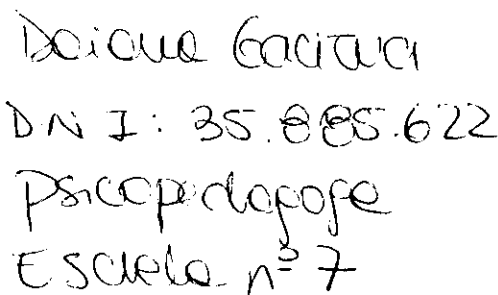 Daiana
DNI: 35.885.622
Psicopedagoga
Escuela nº 7